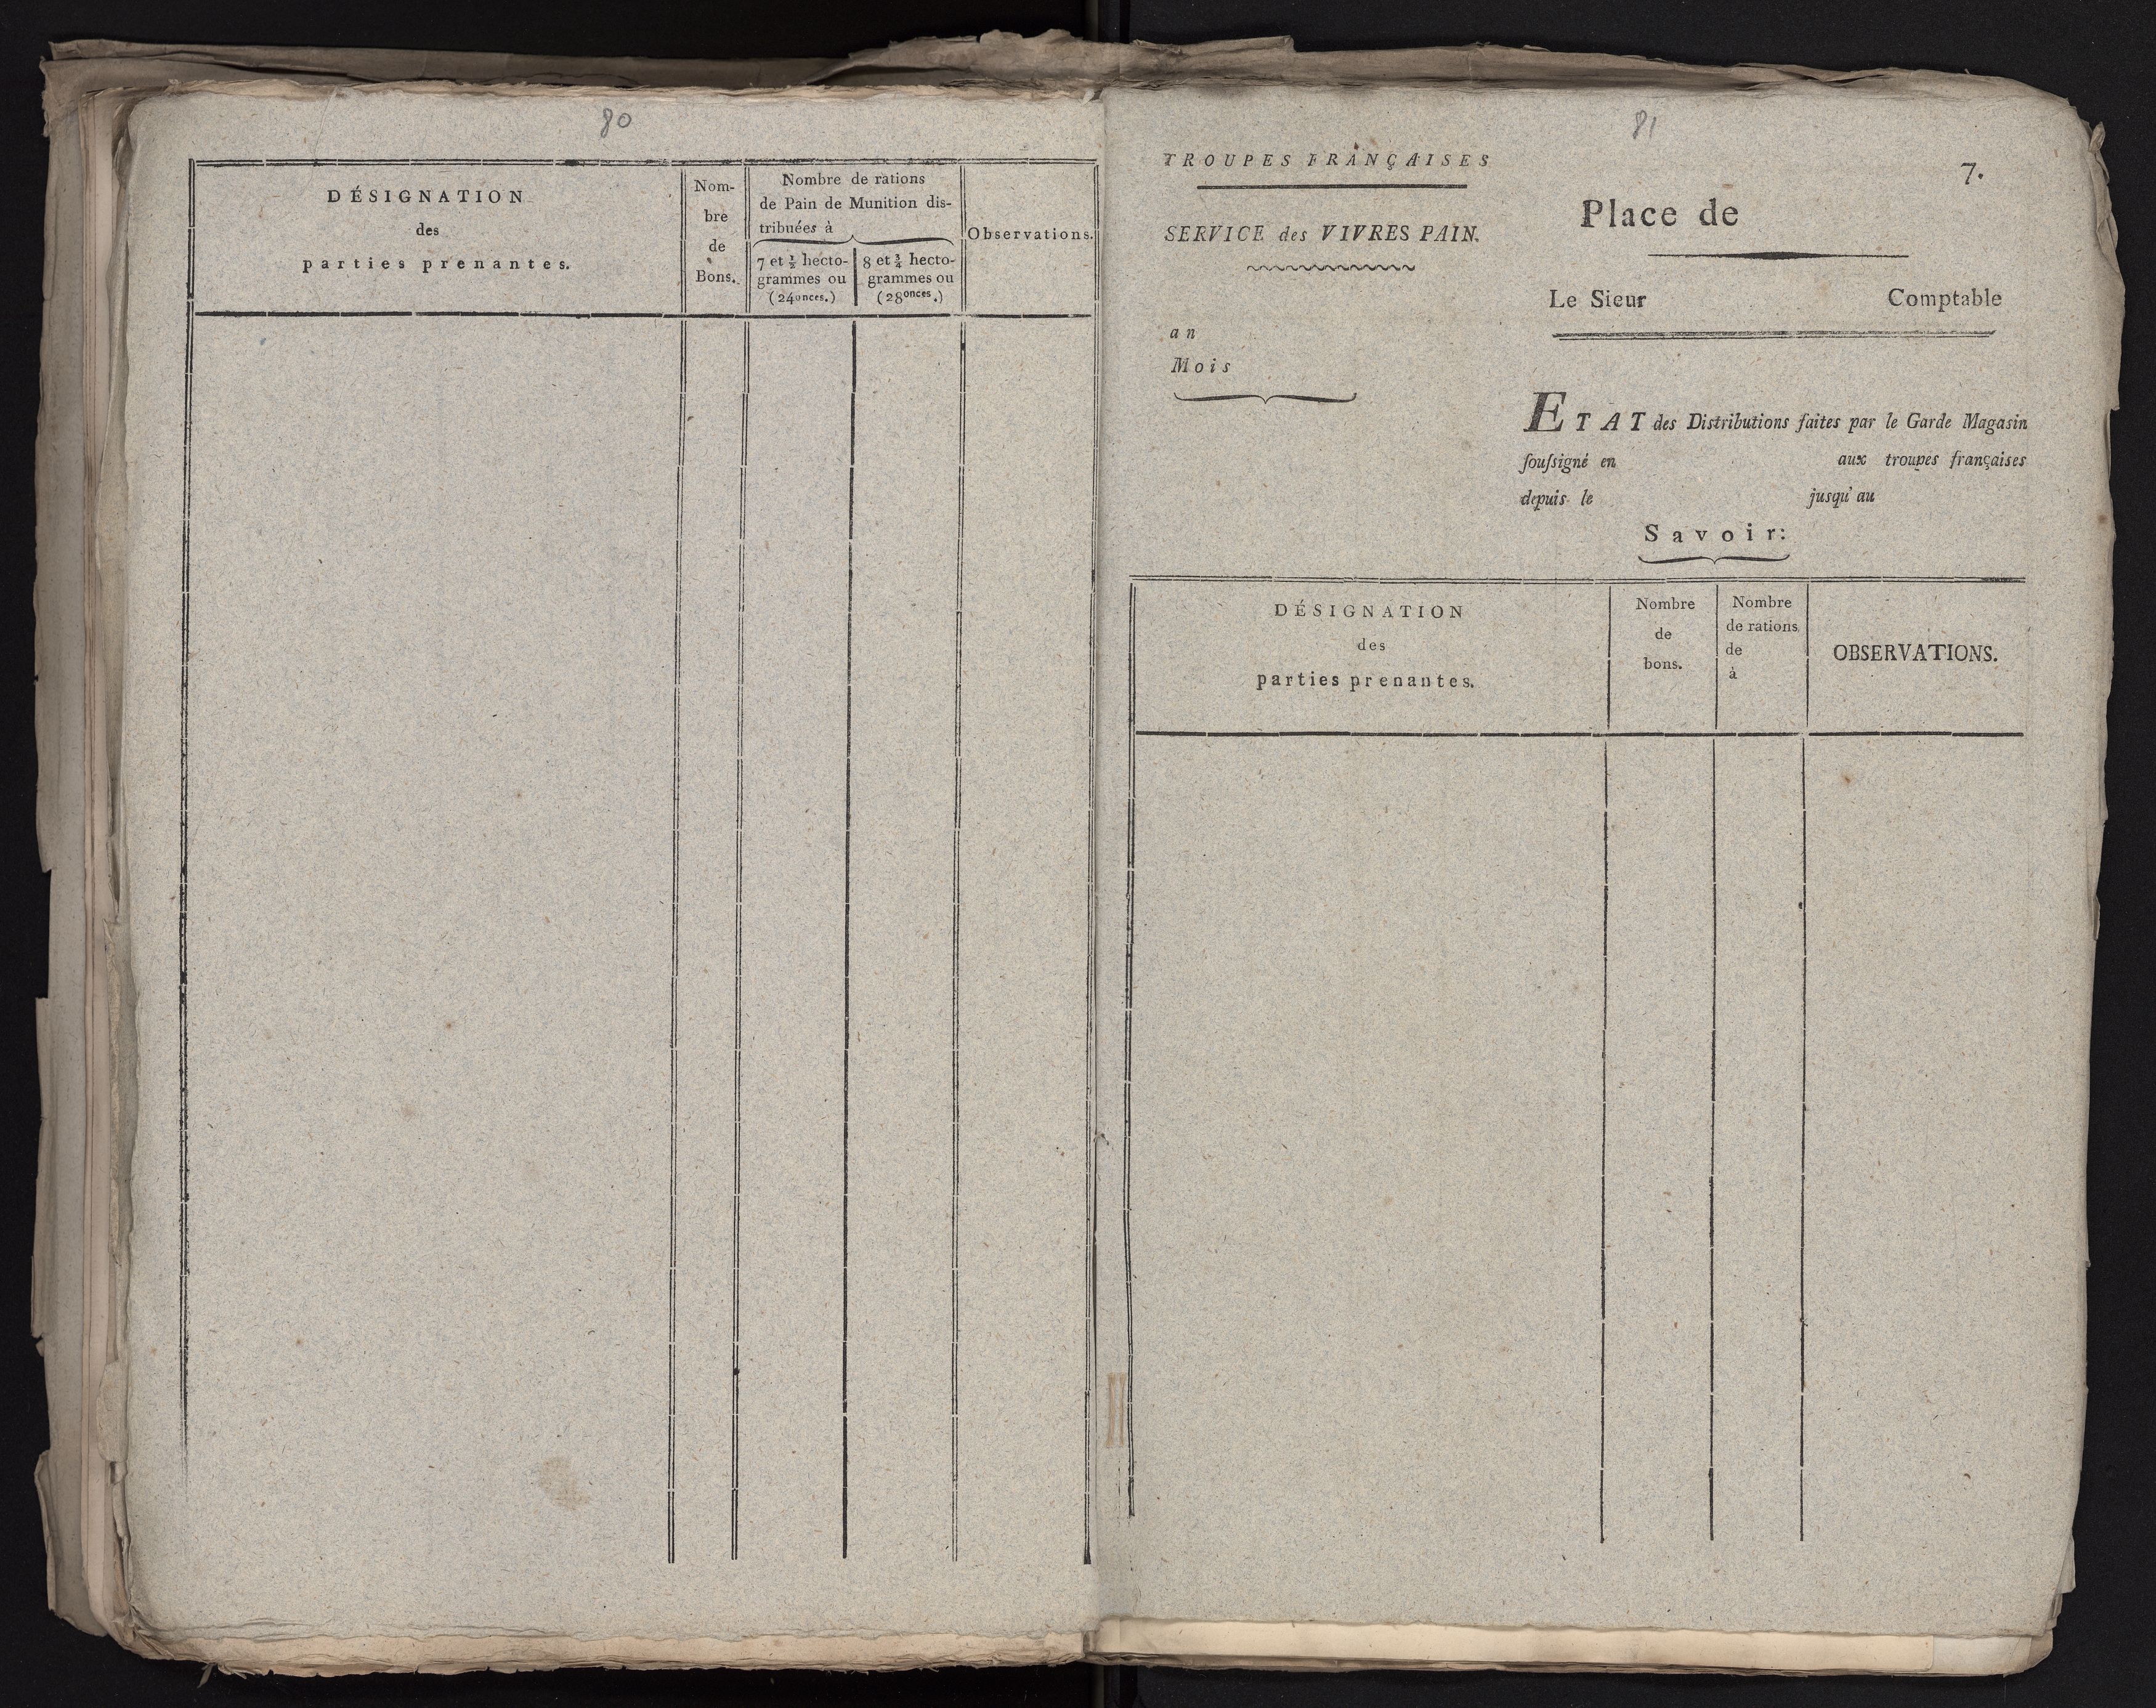 80
DÉSIGNATION
des
parties prenantes.
Nom-
bre
de
Bons.
Nombre de rations
de Pain de Munition dis-
tribuées à
7 et ½ hecto-
grammes ou
(24onces.)
8 et ¾ hecto-
grammes ou
(28onces.)
Observations.
81
7.
TROUPES FRANÇAISES
SERVICE des VIVRES PAIN.
an
Mois
Place de
Le Sieur Comptable
ETAT des Distributions faites par le Garde Magasin
ſouſsigné en aux troupes françaises
depuis le jusqu'au
Savoir:
DÉSIGNATION
des
parties prenantes.
Nombre
de
bons.
Nombre
de rations
de
à
OBSERVATIONS.